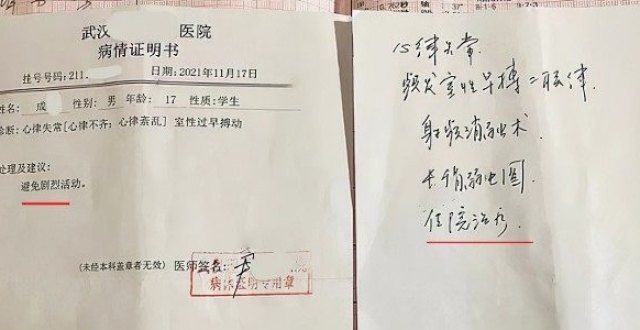 武汉 医院
病情证明书
挂号号码:211. 日期:2021年11月17日
姓名: 成 性别: 男 年龄: 17 性质:学生
诊断:心律失常[心律不齐;心律紊乱] 室性过早搏动
处理及建议:
避免剧烈活动。
(未经本科盖章者无效) 医师签名:
病情证明专用章
心律失常
频发室性早搏 二联律
射频消融术
心电图
住院治疗